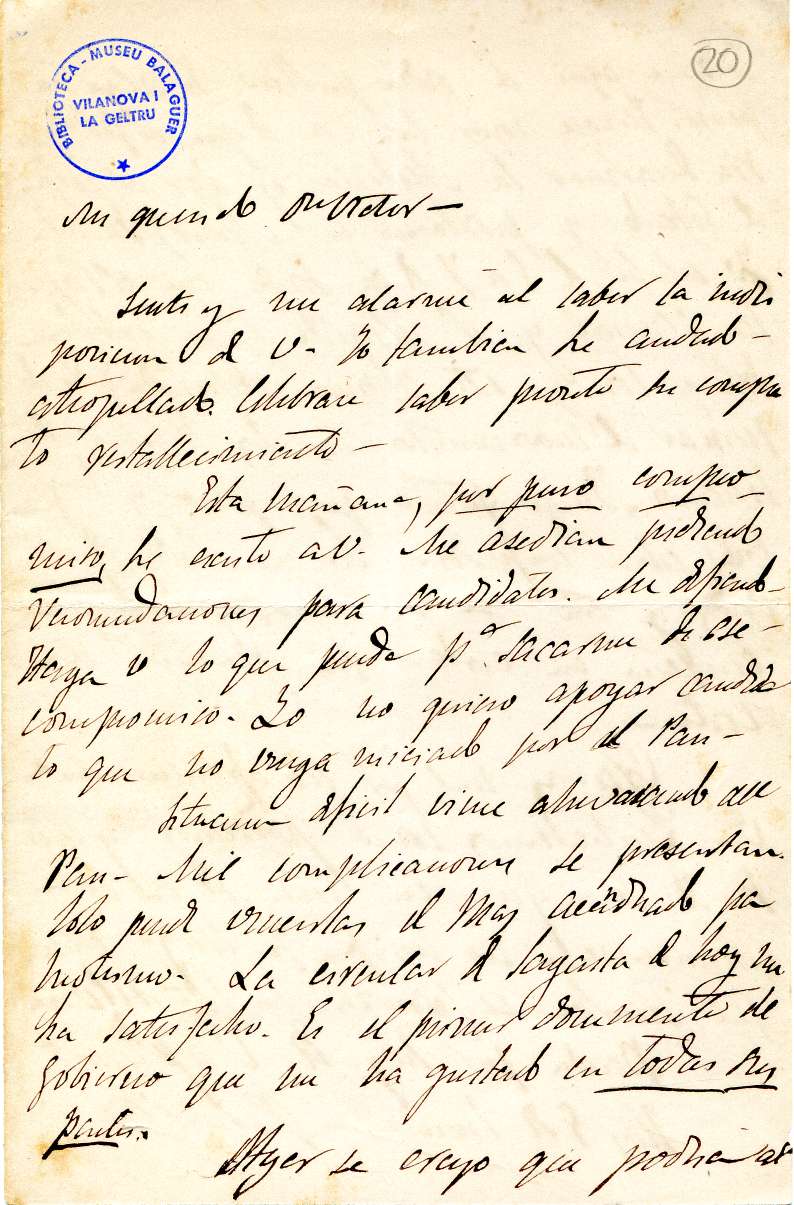 BIBLIOTECA - MUSEU BALAGUER
VILANOVA I
LA GELTRU
20
Mi querido Dn Victor —
Senti y me alarmé al saber la indis
posicion de V. Yo tambien he andado
atropellado. Celebrare saber pronto su comple
to restallecimiento —
Esta mañana, por puro compro-
miso, he escrito a V. Me asedian pidiendo
recomendaciones para candidatos. Me defiendo.
Haga V lo que pueda pa. sacarme de ese
compromiso. Yo no quiero apoyar candida
to que no venga iniciado por el Pais —
Situacion dificil viene atravesando ese
Pais — Mil complicaciones se presentan.
Solo puede vencerlas el mas acendrado pa
triotismo. La circular de Sagasta de hoy me
ha satisfecho. Es el primer documento de
Gobierno que me ha gustado en todas sus
partes.
Ayer se creyo que podria